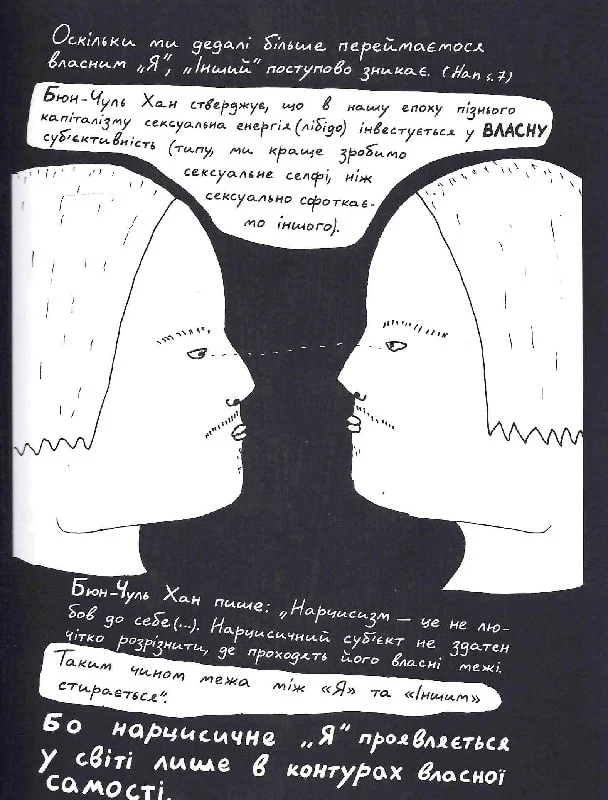 Оскільки ми дедалі більше переймаємося
власним „Я", „Інший" поступово зникає. (Han s.7)
Бюн-Чуль Хан стверджує, що в нашу епоху пізнього
капіталізму сексуальна енергія (лібідо) інвестується у ВЛАСНУ
суб'єктивність (типу, ми краще зробимо
сексуальне селфі, ніж
сексуально сфоткає-
мо іншого).
Бюн-Чуль Хан пише: „Нарцисизм – це не лю-
бов до себе (...). Нарцисичний суб'єкт не здатен
чітко розрізнити, де проходять його власні межі.
Таким чином межа між «Я» та «Іншим»
стирається".
Бо нарцисичне „Я" проявляється
у світі лише в контурах власної
самості.